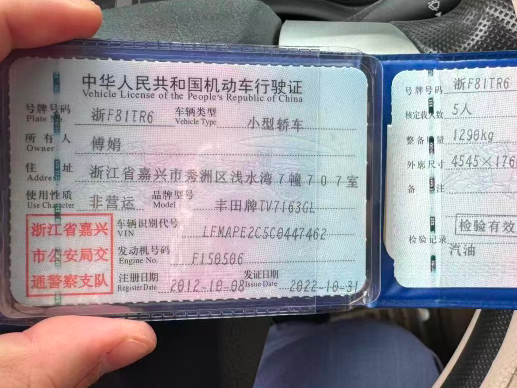 中华人民共和国机动车行驶证
Vehicle License of the People's Republic of China
号牌号码 浙F81TR6 车辆类型 小型轿车
Plate No. Vehicle Type
所有人 傅娟
Owner
住址 浙江省嘉兴市秀洲区浅水湾7幢707室
Address
使用性质 非营运 品牌型号 丰田牌TV7163GL
Use Character Model
浙江省嘉兴
市公安局交
通警察支队
车辆识别代号 LFMAPE2C5C0447462
VIN
发动机号码 F150506
Engine No.
注册日期 2012-10-08 发证日期 2022-10-31
Register Date Issue Date
号牌号码 浙F81TR6
核定载人数 5人
整备质量 1290kg
外廓尺寸 4545×176
备注
检验有效
检验记录
汽油